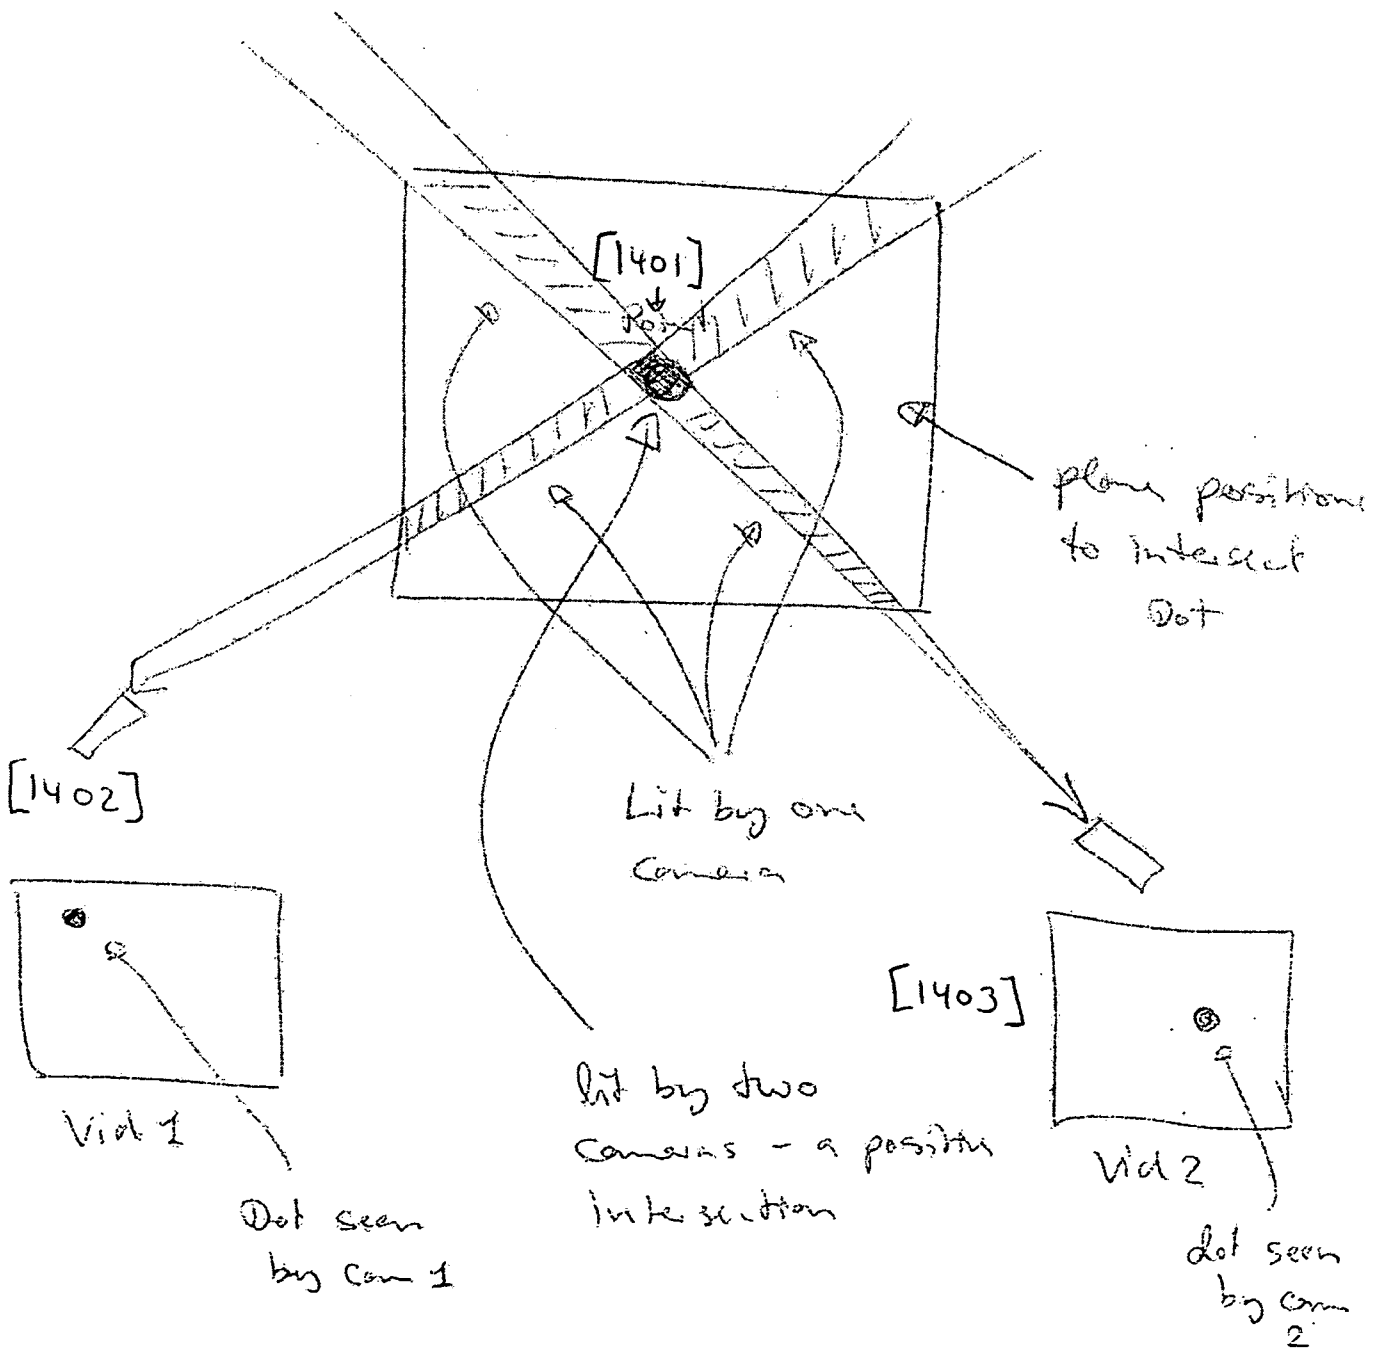 [1401]
Point
plane positions
to intersect
Dot
[1402]
Lit by one
camera
[1403]
Vid 1
lit by two
cameras - a positive
intersection
Vid 2
Dot seen
by cam 1
dot seen
by cam
2